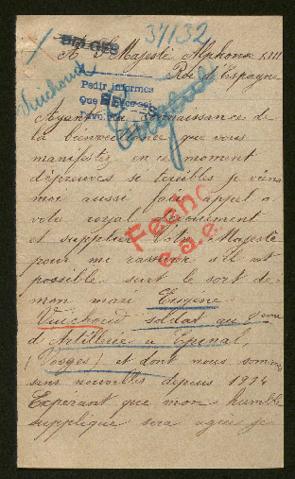 34/32
BELGES
A S. Majesté Alphonse XIII
Roi d'Espagne
Vuichoud
Pedir informes
Ayant eu connaissance de
la bienveillance que vous
manifestez en ce moment
d'épreuves si terribles je viens
moi aussi faire appel a
votre royal
et supplier Votre Majesté
pour me rassurer s'il est
possible sur le sort de
mon mari Eugène
Vuichoud soldat au
d'Artillerie a Epinal,
(Vosges) et dont nous sommes
sans nouvelles depuis 1914
Esperant que mon humble
supplique sera agréé je